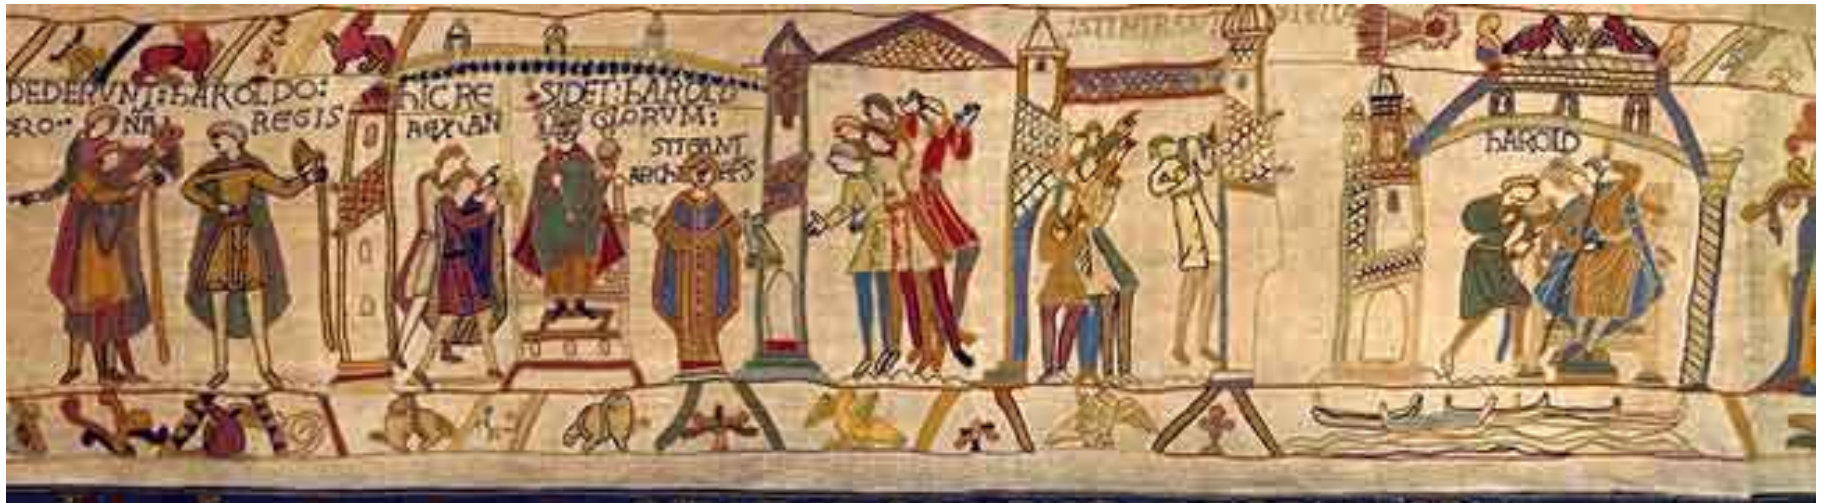 DEDERVNT: hAROLDO:
CRO·· NA REGIS
hIC RE SIDET: hAROLD
REX: AN GLORVM:
STIGANT
ARChIEPS
ISTI MIRANT STELLA
hAROLD